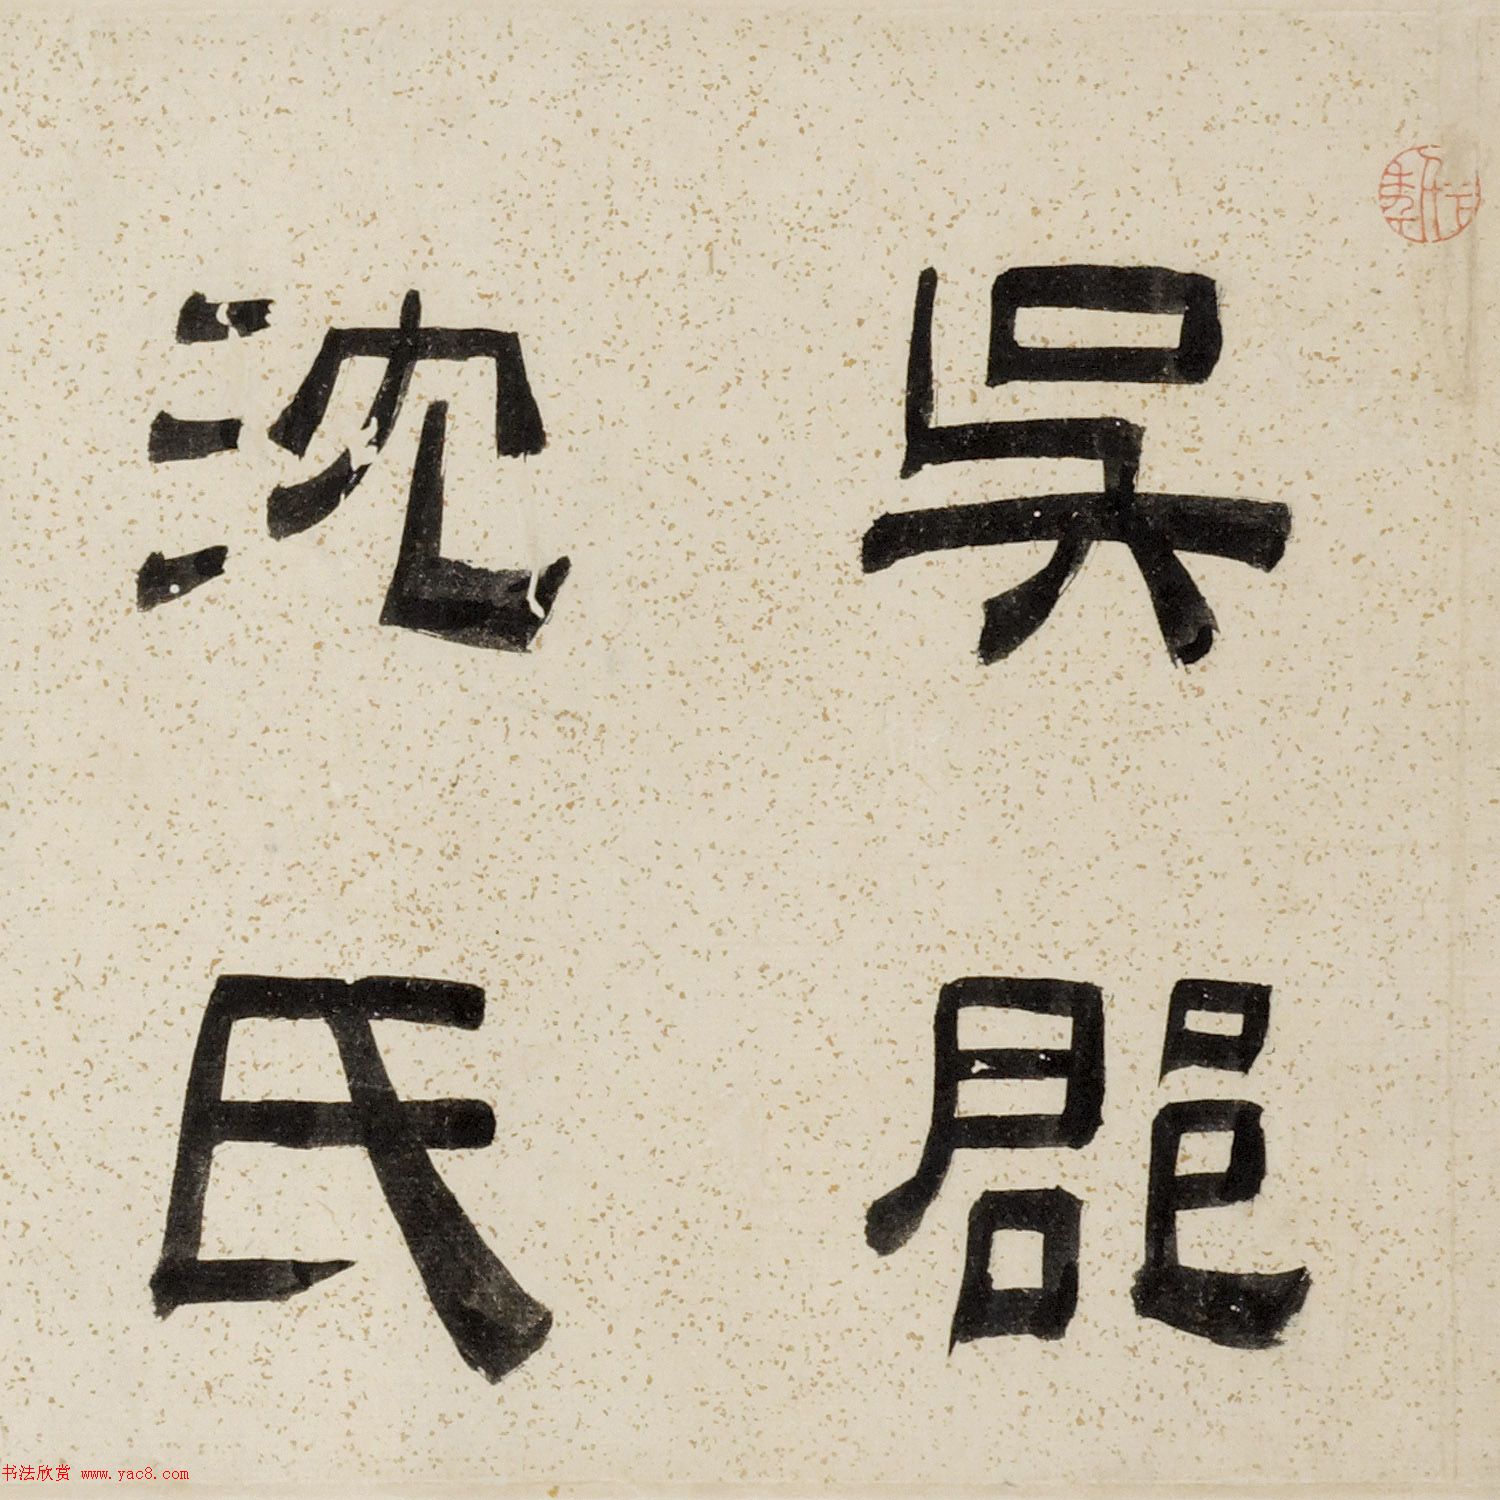 吳郡
沈氏
书法欣赏 www.yac8.com